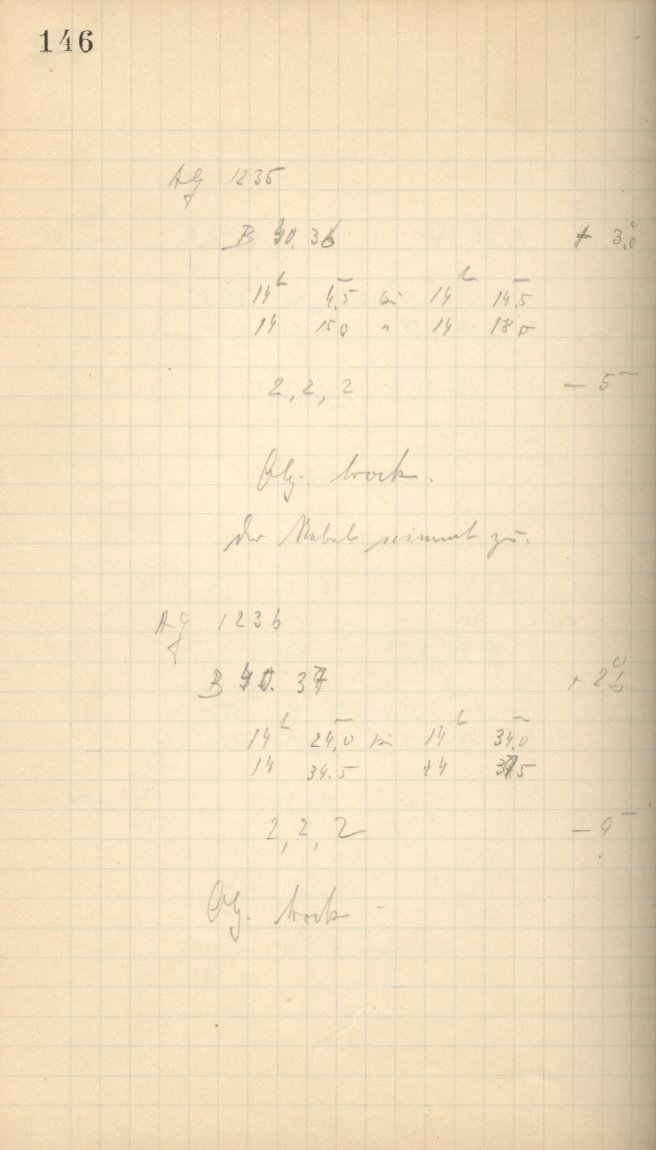 146
AG 1235
B 40.36 + 3.°0
14ʰ 4.ᵐ5 bis 14ʰ 14.ᵐ5
14 15.0 " 14 18.0
2, 2, 2 — 5ᵐ
Obj. trock.
Der Nebel nimmt zu.
AG 1236
B 40.37 + 2.°6
14ʰ 24.ᵐ0 bis 14ʰ 34.ᵐ0
14 34.5 14 37.5
2, 2, 2
Obj. trock.